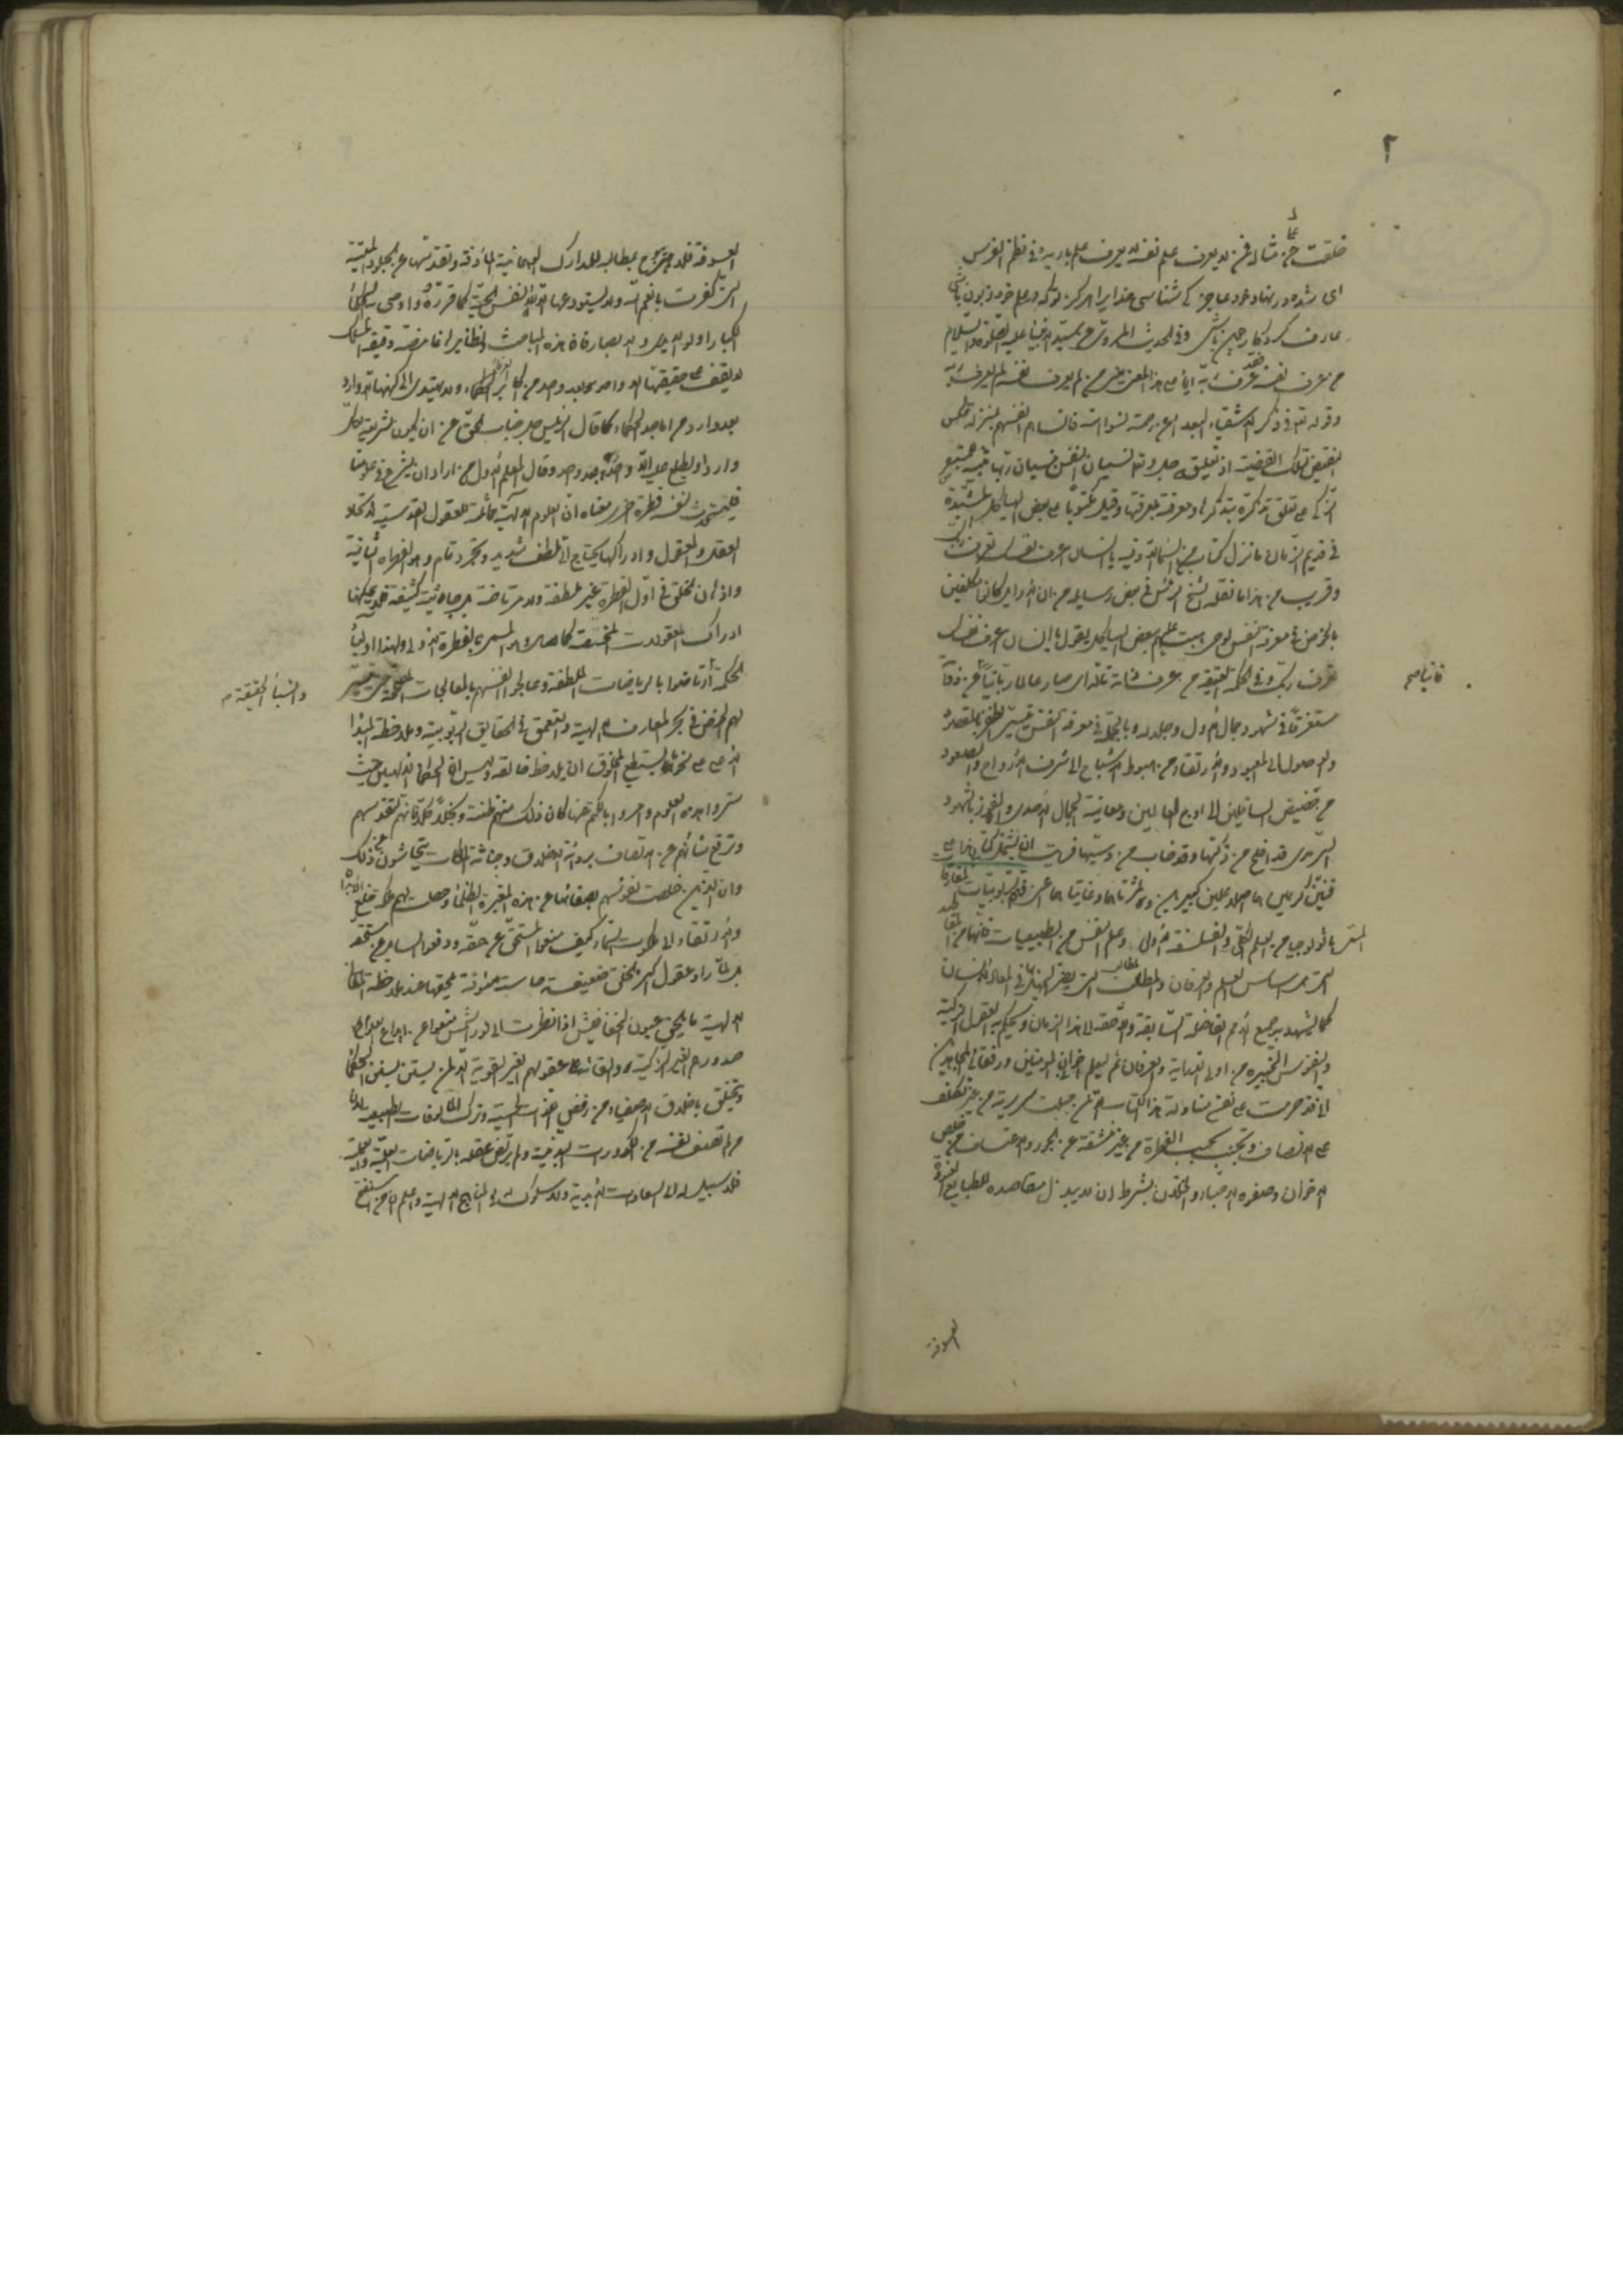 ٢
خلقت على مثاله فمن لا يعرف علم نفسه لا يعرف علم بارئه وفي نظم الفرس
ای شده در نهاد خود عاجز کی شناسی خدایرا هرگز تو که در علم خود زبون باشی
عارف کردگار چون باشی وفي الحديث المروي عن سيد الأنبياء عليه الصلوة والسلام
من عرف نفسه فقد عرف ربه ايماء الى هذا المعنى يعني من لم يعرف نفسه لم يعرف ربه
وقوله تعالى في ذكر الاشقياء البعداء عن رحمته نسوا الله فانساهم انفسهم بمنزلة عكس
نقيض تلك القضية اذ تعليقه جل وعلا نسيان النفس بنسيان ربها تنبيه
الزكي على تعلق تذكره بتذكرها ومعرفته بمعرفتها وقيل كان مكتوبا على بعض الهياكل المشيدة
في قديم الزمان ما نزل كتاب من السماء الا وفيه يا انسان اعرف نفسك تعرف ربك
وقريب من هذا ما نقله الشيخ الرئيس في بعض رسائله من ان الاوايل كانوا مكلفين
بالخوض في معرفة النفس لوحي هبط عليهم ببعض الهياكل يقول يا انسان اعرف نفسك
تعرف ربك وفي الحكمة العتيقة من عرف ذاته تأله اى صار عالما ربانيا فانيا عن ذاته
مستغرقا في شهود جمال الاول وجلاله وبالجملة في معرفة النفس تيسر الظفر بالمقصود
والوصول الى المعبود والارتقاء من هبوط الاشباح الى شرف الارواح والصعود
من حضيض السافلين الى اوج العالمين ومعاينة الجمال الاحدي والفوز بالشهود
السرمدي قد افلح من زكيها وقد خاب من دسيها فرأيت ان يشتمل كتابي هذا على
فنين كريمين هما اصلا علمين كبيرين وثمرتاهما وغايتاهما اعنى فن الربوبيات والمفارقات
المسمى باثولوجيا من العلم الكلي والفلسفة الاولى وعلم النفس من الطبيعيات فانهما من المقاصد
التي هي اساس العلم والعرفان والمطالب التي يضر الجهل بها في المعاد للانسان
كما يشهد به جميع الامم الفاضلة السابقة واللاحقة الى هذا الزمان ويحكم به العقول الزكية
والنفوس الخبيرة من اولى الدراية والعرفان ثم ليعلم اخواني المؤمنين ورفقائي المجاهدين
اني قد حرمت على نفسي مناولة هذا الكتاب الا لمن جبلت سريرته من غير تكلف
على الانصاف وتجنب بحسب الفطرة من غير مشقة عن الجور والاعتساف من خلص
الاخوان وصفوة الاحباء والخلان بشرط ان لا يبذل مقاصده للطبايع العسوفة
فانيا صح
العسوفة
العسوفة فلا يخرج بمطالبه للمدارك الجسمانية المأوفة ويقدسها عن الجلود الميتة
التي كفرت بانعم الله ولا يستودعها الا للانفس الحية كما قرره واوصى به الحكماء
الكبار اولو الايدي والابصار فان هذه المباحث لنظايرها غامضة دقيقة المسلك
لا يقف على حقيقتها الا واحد بعد واحد من اكابر العرفاء الحكماء ولا يهتدي الى كنهها الا وارد
بعد وارد من اماجد الحكماء كما قال الرئيس جل جناب الحق عن ان يكون شريعة لكل
وارد او يطلع عليه الا واحد بعد واحد وقال المعلم الاول من اراد ان يشرع في علومنا
فليستحدث لنفسه فطرة اخرى معناه ان العلوم الالهية مماثلة للعقول القدسية لاتحاد
العقل والمعقول وادراكها يحتاج الى لطف شديد وتجرد تام وهو الفطرة الثانية
واذهان الخلق في اول الفطرة غير ملطفة ولا مرتاضة بل جاسية كثيفة فلا يمكنها
ادراك المعقولات المحضة كما هي وهو المسمى بالفطرة الاولى ولهذا اولياء
الحكمة ارتاضوا بالرياضات الملطفة وعالجوا انفسهم بالمعالجات المصححة حتى تيسر
لهم الخوض في بحر المعارف الالهية والتعمق في الحقايق الربوبية وملاحظة المبدأ
الاعلى على نحو ما يستطيع المخلوق ان يلاحظ خالقه وليس ان الحكماء الالهيين حيث
ستروا هذه العلوم وامروا بالكتم عنها كان ذلك منهم ضنة وبخلا كلا فانهم لتقدسهم
وترفع شأنهم عن الاتصاف برداءة الاخلاق وخباثة الملكات يتحاشون عن ذلك
وان الذين خلصت نفوسهم بصفائها عن هذه المغبرة الظلماء وحصلت لهم ملكة خلع الابدان
والارتقاء الى ملكوت السماء كيف منعوا المستحق عن حقه ودفعوا السايل عن مستحقه
بل لما رأوا عقول اكثر الخلق ضعيفة حاسة مئوفة يلحقها عند ملاحظة المعارف
الالهية ما يلحق عيون الخفافيش اذا نظرت الى نور الشمس منعوا عن ايداع العلوم
صدورهم الغير الزكية والقائها عقولهم الغير القوية الا لمن يستن بسنن الحكماء
ويتخلق باخلاق الاصفياء من رفض اللذات الحسية وترك المألوفات الطبيعية
من لم تصف نفسه من الكدورات البدنية ولم يرتض عقله بالرياضات العلمية والعملية
فلا سبيل له الى السعادات الابدية ولا سلوك له في المناهج الالهية واعلم ان من
والانبياء الحقيقة م